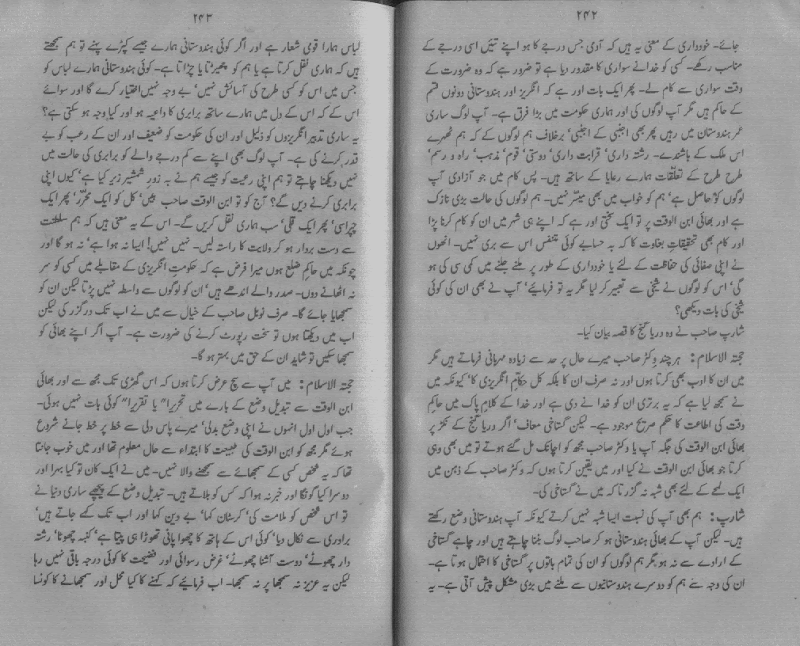 ۲۴۲
جائے۔ خودداری کے معنی یہ ہیں کہ آدمی جس درجے کا ہو اپنے تئیں اسی درجے کے
مناسب رکھے۔ کسی کو خدا نے سواری کا مقدور دیا ہے تو ضرور ہے کہ وہ ضرورت کے
وقت سواری سے کام لے۔ پھر ایک بات اور ہے کہ انگریز اور ہندوستانی دونوں قسم
کے حاکم ہیں مگر آپ لوگوں کی اور ہماری حکومت میں بڑا فرق ہے۔ آپ لوگ ساری
عمر ہندوستان میں رہیں پھر بھی اجنبی کے اجنبی، برخلاف ہم لوگوں کے کہ ہم ٹھہرے
اس ملک کے باشندے۔ رشتہ داری، قرابت داری، دوستی، قوم، مذہب، راہ و رسم،
طرح طرح کے تعلقات ہمارے رعایا کے ساتھ ہیں۔ پس کام میں جو آزادی آپ
لوگوں کو حاصل ہے، ہم کو خواب میں بھی میسر نہیں۔ ہم لوگوں کی حالت بڑی نازک
ہے اور بھائی ابن الوقت پر تو ایک سختی اور ہے کہ اپنے ہی شہر میں ان کو کام کرنا پڑا
اور کام بھی تحقیقاتِ بغاوت کا کہ بہ حسابے کوئی متنفس اس سے بری نہیں۔ انھوں
نے اپنی صفائی کی حفاظت کے لئے یا خودداری کے طور پر ملنے جلنے میں کمی سی کی ہو
گی، اس کو لوگوں نے شیخی سے تعبیر کر لیا مگر یہ تو فرمائیے، آپ نے بھی ان کی کوئی
شیخی کی بات دیکھی؟
شارپ صاحب نے وہ دریا گنج کا قصہ بیان کیا۔
حجتہ الاسلام: ہر چند وکٹر صاحب میرے حال پر حد سے زیادہ مہربانی فرماتے ہیں مگر
میں ان کا ادب بھی کرتا ہوں اور نہ صرف ان کا بلکہ کل حکام انگریزی کا، کیونکہ میں
نے سمجھ لیا ہے کہ یہ برتری ان کو خدا نے دی ہے اور خدا کے کلامِ پاک میں حاکمِ
وقت کی اطاعت کا حکم صریح موجود ہے۔ لیکن گستاخی معاف، اگر دریا گنج کے نکڑ پر
بھائی ابن الوقت کی جگہ آپ یا وکٹر صاحب مجھ کو اچانک مل گئے ہوتے تو میں بھی وہی
کرتا جو بھائی ابن الوقت نے کیا اور میں یقین کرتا ہوں کہ وکٹر صاحب کے ذہن میں
ایک لمحے کے لئے بھی شبہ نہ گزرتا کہ میں نے گستاخی کی۔
شارپ: ہم بھی آپ کی نسبت ایسا شبہ نہیں کرتے کیونکہ آپ ہندوستانی وضع رکھتے
ہیں۔ لیکن آپ کے بھائی ہندوستانی ہو کر صاحب لوگ بننا چاہتے ہیں اور چاہے گستاخی
کے ارادے سے نہ ہو مگر ہم لوگوں کو ان کی تمام باتوں پر گستاخی کا احتمال ہوتا ہے۔
ان کی وجہ سے ہم کو دوسرے ہندوستانیوں سے ملنے میں بڑی مشکل پیش آتی ہے۔ یہ
۲۴۳
لباس ہمارا قومی شعار ہے اور اگر کوئی ہندوستانی ہمارے جیسے کپڑے پہنے تو ہم سمجھتے
ہیں کہ ہماری نقل کرتا ہے یا ہم کو چھیڑتا یا چڑاتا ہے۔ کوئی ہندوستانی ہمارے لباس کو
جس میں اس کو کسی طرح کی آسائش نہیں، بے وجہ نہیں اختیار کرے گا اور سوائے
اس کے کہ اس کے دل میں ہمارے ساتھ برابری کا داعیہ ہو اور کیا وجہ ہو سکتی ہے؟
یہ ساری تدبیر انگریزوں کو ذلیل اور ان کی حکومت کو ضعیف اور ان کے رعب کو بے
قدر کرنے کی ہے۔ آپ لوگ بھی اپنے سے کم درجے والے کو برابری کی حالت میں
نہیں دیکھنا چاہتے تو ہم اپنی رعیت کو جسے ہم نے بہ زورِ شمشیر زیر کیا ہے، کیوں اپنی
برابری کرنے دیں گے؟ آج کو تو ابن الوقت صاحب ہیں، کل کو ایک محرر، پھر ایک
چپراسی، پھر ایک قلی، سب ہماری نقل کریں گے۔ اس کے یہ معنی ہیں کہ ہم سلطنت
سے دست بردار ہو کر ولایت کا راستہ لیں۔ نہیں نہیں! ایسا نہ ہوا ہے، نہ ہو گا اور
چونکہ میں حاکمِ ضلع ہوں میرا فرض ہے کہ حکومتِ انگریزی کے مقابلے میں کسی کو سر
نہ اٹھانے دوں۔ صدر والے اندھے ہیں، ان کو لوگوں سے واسطہ نہیں پڑتا لیکن ان کو
سمجھایا جائے گا۔ صرف نوبل صاحب کے خیال سے میں نے اب تک درگزر کی لیکن
اب میں دیکھتا ہوں تو سخت رپورٹ کرنے کی ضرورت ہے۔ آپ اگر اپنے بھائی کو
سمجھا سکیں تو شاید ان کے حق میں بہتر ہو گا۔
حجتہ الاسلام: میں آپ سے سچ عرض کرتا ہوں کہ اس گھڑی تک مجھ سے اور بھائی
ابن الوقت سے تبدیلِ وضع کے بارے میں تحریراً یا تقریراً کوئی بات نہیں ہوئی۔
جب اول اول انہوں نے اپنی وضع بدلی، میرے پاس دلی سے خط پر خط جانے شروع
ہوئے مگر مجھ کو ابن الوقت کی طبیعت کا ابتداء سے حال معلوم تھا اور میں خوب جانتا
تھا کہ یہ شخص کسی کے سمجھائے سے سمجھنے والا نہیں۔ میں نے ایک کان تو کیا بہرا اور
دوسرا کیا گونگا اور خبر نہ ہوا کہ کس کو بلاتے ہیں۔ تبدیلِ وضع کے پیچھے ساری دنیا نے
تو اس شخص کو ملامت کی، کرسٹان کہا، بے دین کہا اور اب تک کہے جاتے ہیں،
برادری سے نکال دیا، کوئی اس کے ہاتھ کا چھوا پانی تھوڑا ہی پیتا ہے، کنبہ چھوٹا، رشتہ
دار چھوٹے، دوست آشنا چھوٹے، غرض رسوائی اور فضیحت کا کوئی درجہ باقی نہیں رہا
لیکن یہ عزیز نہ سمجھا پر نہ سمجھا۔ اب فرمائیے کہ کہنے کا کیا محل اور سمجھانے کا کونسا